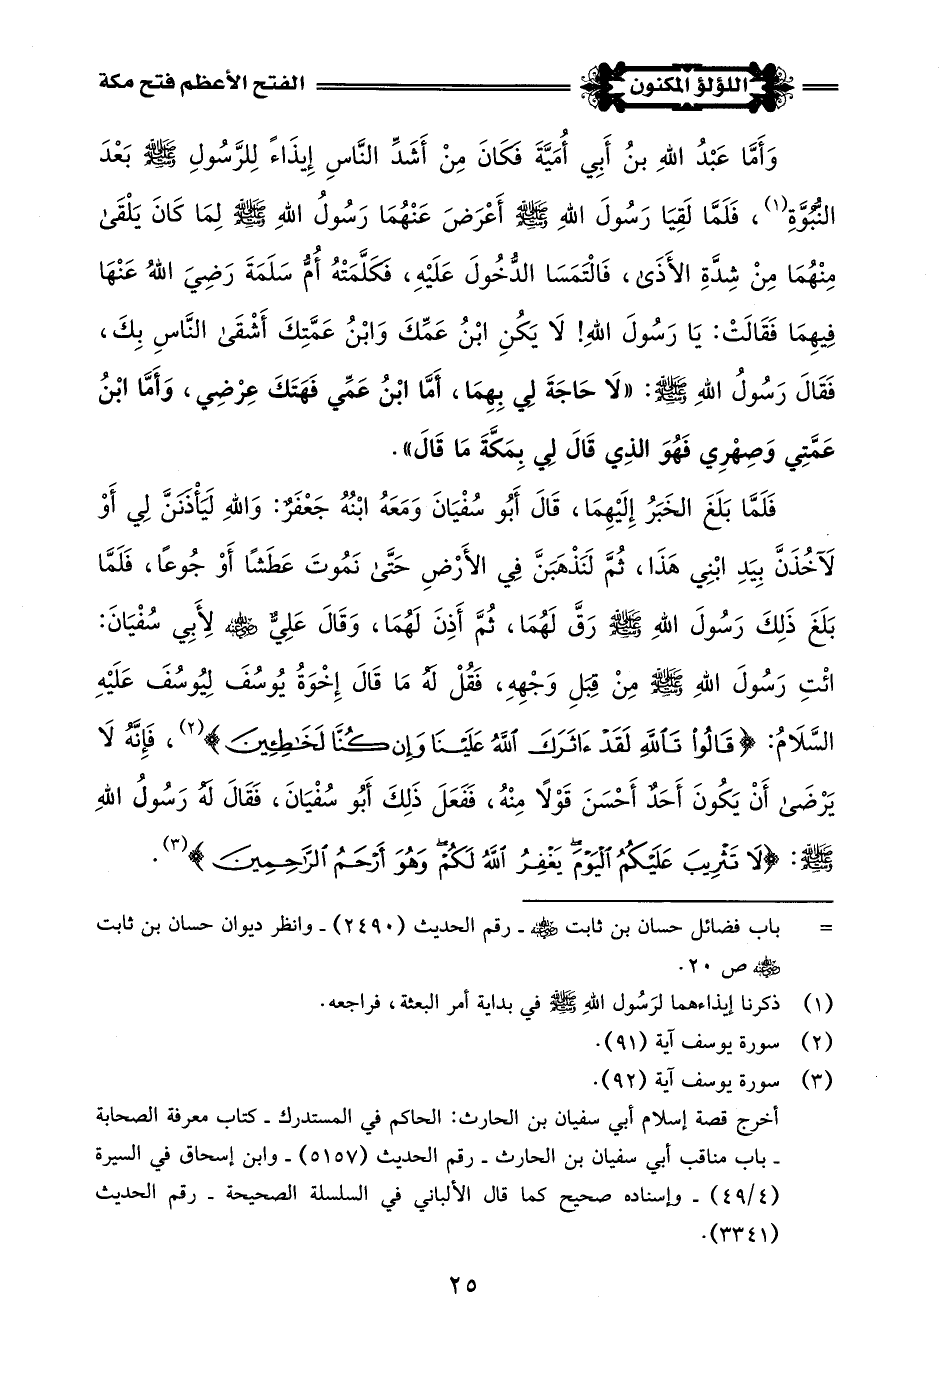 اللؤلؤ المكنون
الفتح الأعظم فتح مكة
وَأَمَّا عَبْدُ اللهِ بنُ أَبِي أُمَيَّةَ فَكَانَ مِنْ أَشَدِّ النَّاسِ إِيذَاءً لِلرَّسُولِ ﷺ بَعْدَ
النُّبُوَّةِ(١)، فَلَمَّا لَقِيَا رَسُولَ اللهِ ﷺ أَعْرَضَ عَنْهُمَا رَسُولُ اللهِ ﷺ لِمَا كَانَ يَلْقَىٰ
مِنْهُمَا مِنْ شِدَّةِ الأَذَىٰ، فَالْتَمَسَا الدُّخُولَ عَلَيْهِ، فَكَلَّمَتْهُ أُمُّ سَلَمَةَ رَضِيَ اللهُ عَنْهَا
فِيهِمَا فَقَالَتْ: يَا رَسُولَ اللهِ! لَا يَكُنِ ابْنُ عَمِّكَ وَابْنُ عَمَّتِكَ أَشْقَىٰ النَّاسِ بِكَ،
فَقَالَ رَسُولُ اللهِ ﷺ: «لَا حَاجَةَ لِي بِهِمَا، أَمَّا ابْنُ عَمِّي فَهَتَكَ عِرْضِي، وَأَمَّا ابْنُ
عَمَّتِي وَصِهْرِي فَهُوَ الذِي قَالَ لِي بِمَكَّةَ مَا قَالَ».
فَلَمَّا بَلَغَ الخَبَرُ إِلَيْهِمَا، قَالَ أَبُو سُفْيَانَ وَمَعَهُ ابْنُهُ جَعْفَرٌ: وَاللهِ لَيَأْذَنَنَّ لِي أَوْ
لَآخُذَنَّ بِيَدِ ابْنِي هَذَا، ثُمَّ لَنَذْهَبَنَّ فِي الأَرْضِ حَتَّىٰ نَمُوتَ عَطَشًا أَوْ جُوعًا، فَلَمَّا
بَلَغَ ذَلِكَ رَسُولَ اللهِ ﷺ رَقَّ لَهُمَا، ثُمَّ أَذِنَ لَهُمَا، وَقَالَ عَلِيٌّ رضي الله عنه لِأَبِي سُفْيَانَ:
ائْتِ رَسُولَ اللهِ ﷺ مِنْ قِبَلِ وَجْهِهِ، فَقُلْ لَهُ مَا قَالَ إِخْوَةُ يُوسُفَ لِيُوسُفَ عَلَيْهِ
السَّلَامُ: ﴿قَالُوا۟ تَٱللَّهِ لَقَدْ ءَاثَرَكَ ٱللَّهُ عَلَيْنَا وَإِن كُنَّا لَخَـٰطِـِٔينَ﴾(٢)، فَإِنَّهُ لَا
يَرْضَىٰ أَنْ يَكُونَ أَحَدٌ أَحْسَنَ قَوْلًا مِنْهُ، فَفَعَلَ ذَلِكَ أَبُو سُفْيَانَ، فَقَالَ لَهُ رَسُولُ اللهِ
ﷺ: ﴿لَا تَثْرِيبَ عَلَيْكُمُ ٱلْيَوْمَ ۖ يَغْفِرُ ٱللَّهُ لَكُمْ ۖ وَهُوَ أَرْحَمُ ٱلرَّٰحِمِينَ﴾(٣).
= باب فضائل حسان بن ثابت رضي الله عنه ـ رقم الحديث (٢٤٩٠) ـ وانظر ديوان حسان بن ثابت
رضي الله عنه ص ٢٠.
(١) ذكرنا إيذاءهما لرَسُول اللهِ ﷺ في بداية أمر البعثة، فراجعه.
(٢) سورة يوسف آية (٩١).
(٣) سورة يوسف آية (٩٢).
أخرج قصة إسلام أبي سفيان بن الحارث: الحاكم في المستدرك ـ كتاب معرفة الصحابة
ـ باب مناقب أبي سفيان بن الحارث ـ رقم الحديث (٥١٥٧) ـ وابن إسحاق في السيرة
(٤٩/٤) ـ وإسناده صحيح كما قال الألباني في السلسلة الصحيحة ـ رقم الحديث
(٣٣٤١).
٢٥